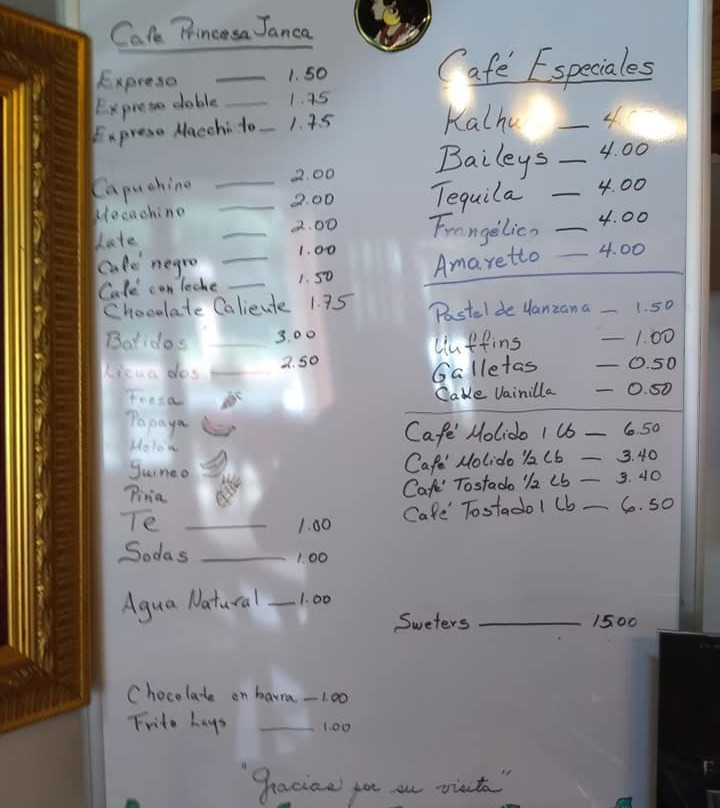 Cafe Princesa Janca
Expreso — 1.50
Expreso doble — 1.75
Expreso Macchito — 1.75
Capuchino — 2.00
Mocachino — 2.00
Late — 2.00
Café negro — 1.00
Café con leche — 1.50
Chocolate Caliente 1.75
Batidos — 3.00
Licuados — 2.50
Fresa
Papaya
Melón
Guineo
Piña
Te — 1.00
Sodas — 1.00
Agua Natural — 1.00
Chocolate en barra — 1.00
Frito Lays — 1.00
Café Especiales
Baileys — 4.00
Tequila — 4.00
Frangélico — 4.00
Amaretto — 4.00
Pastel de Manzana — 1.50
Muffins — 1.00
Galletas — 0.50
Cake Vainilla — 0.50
Café Molido 1 Lb — 6.50
Café Molido 1/2 Lb — 3.40
Café Tostado 1/2 Lb — 3.40
Café Tostado 1 Lb — 6.50
Sweters — 15.00
"Gracias por su visita"